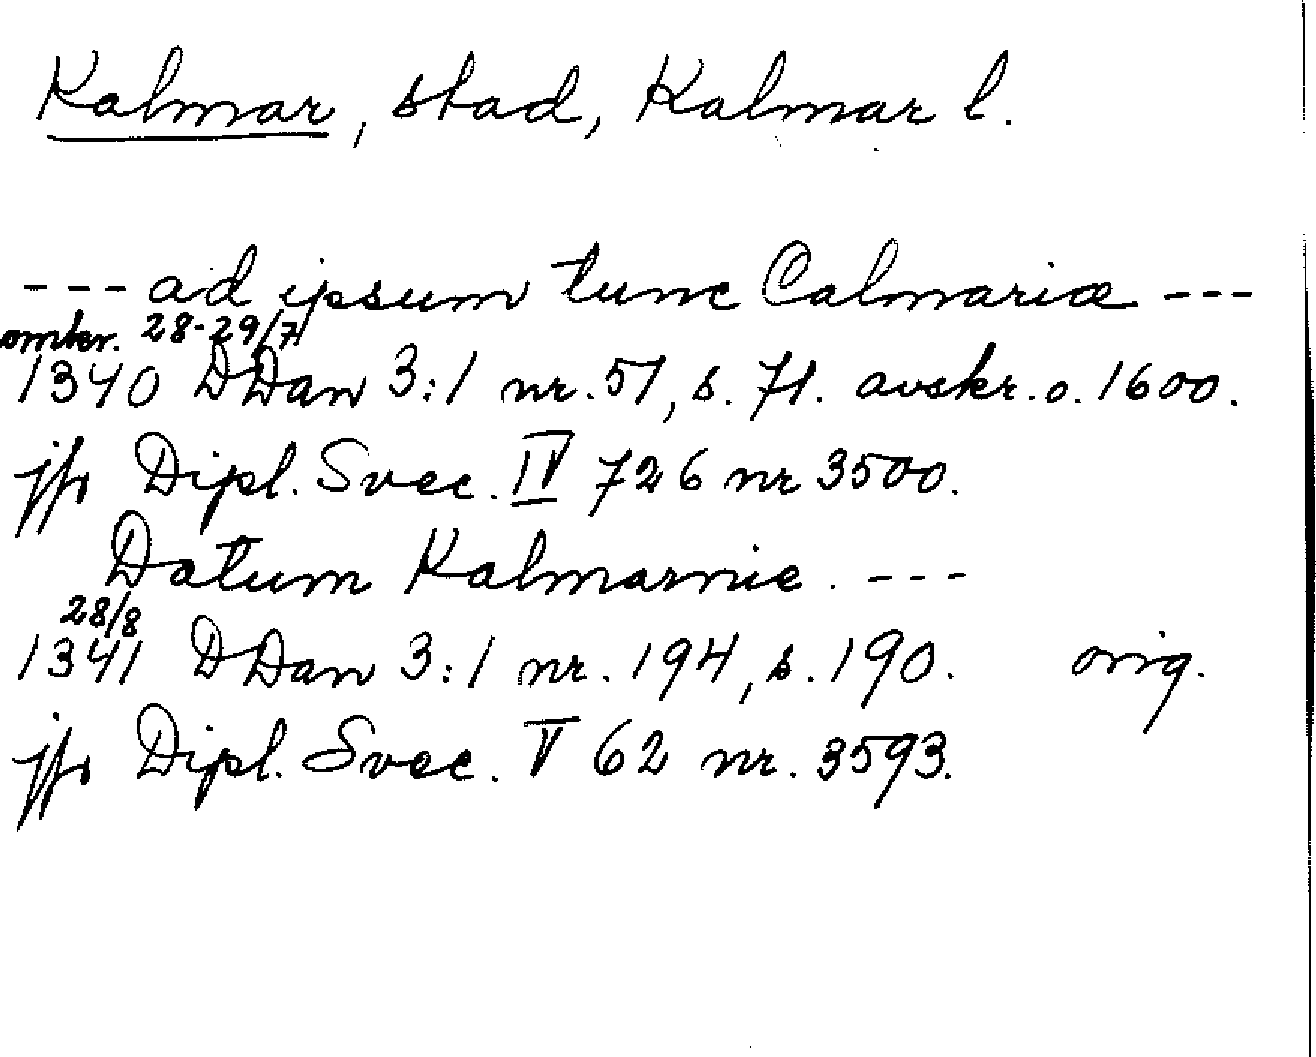 Kalmar, stad, Kalmar l.
--- ad ipsum tunc Calmariæ ---
omkr. 28-29/7
1340 DDan 3:1 nr. 57, s. 71. avskr. o. 1600.
jfr Dipl. Svec. IV 726 nr 3500.
Datum Kalmarnie. ---
28/8
1341 DDan 3:1 nr. 194, s. 190. orig.
jfr Dipl. Svec. V 62 nr. 3593.